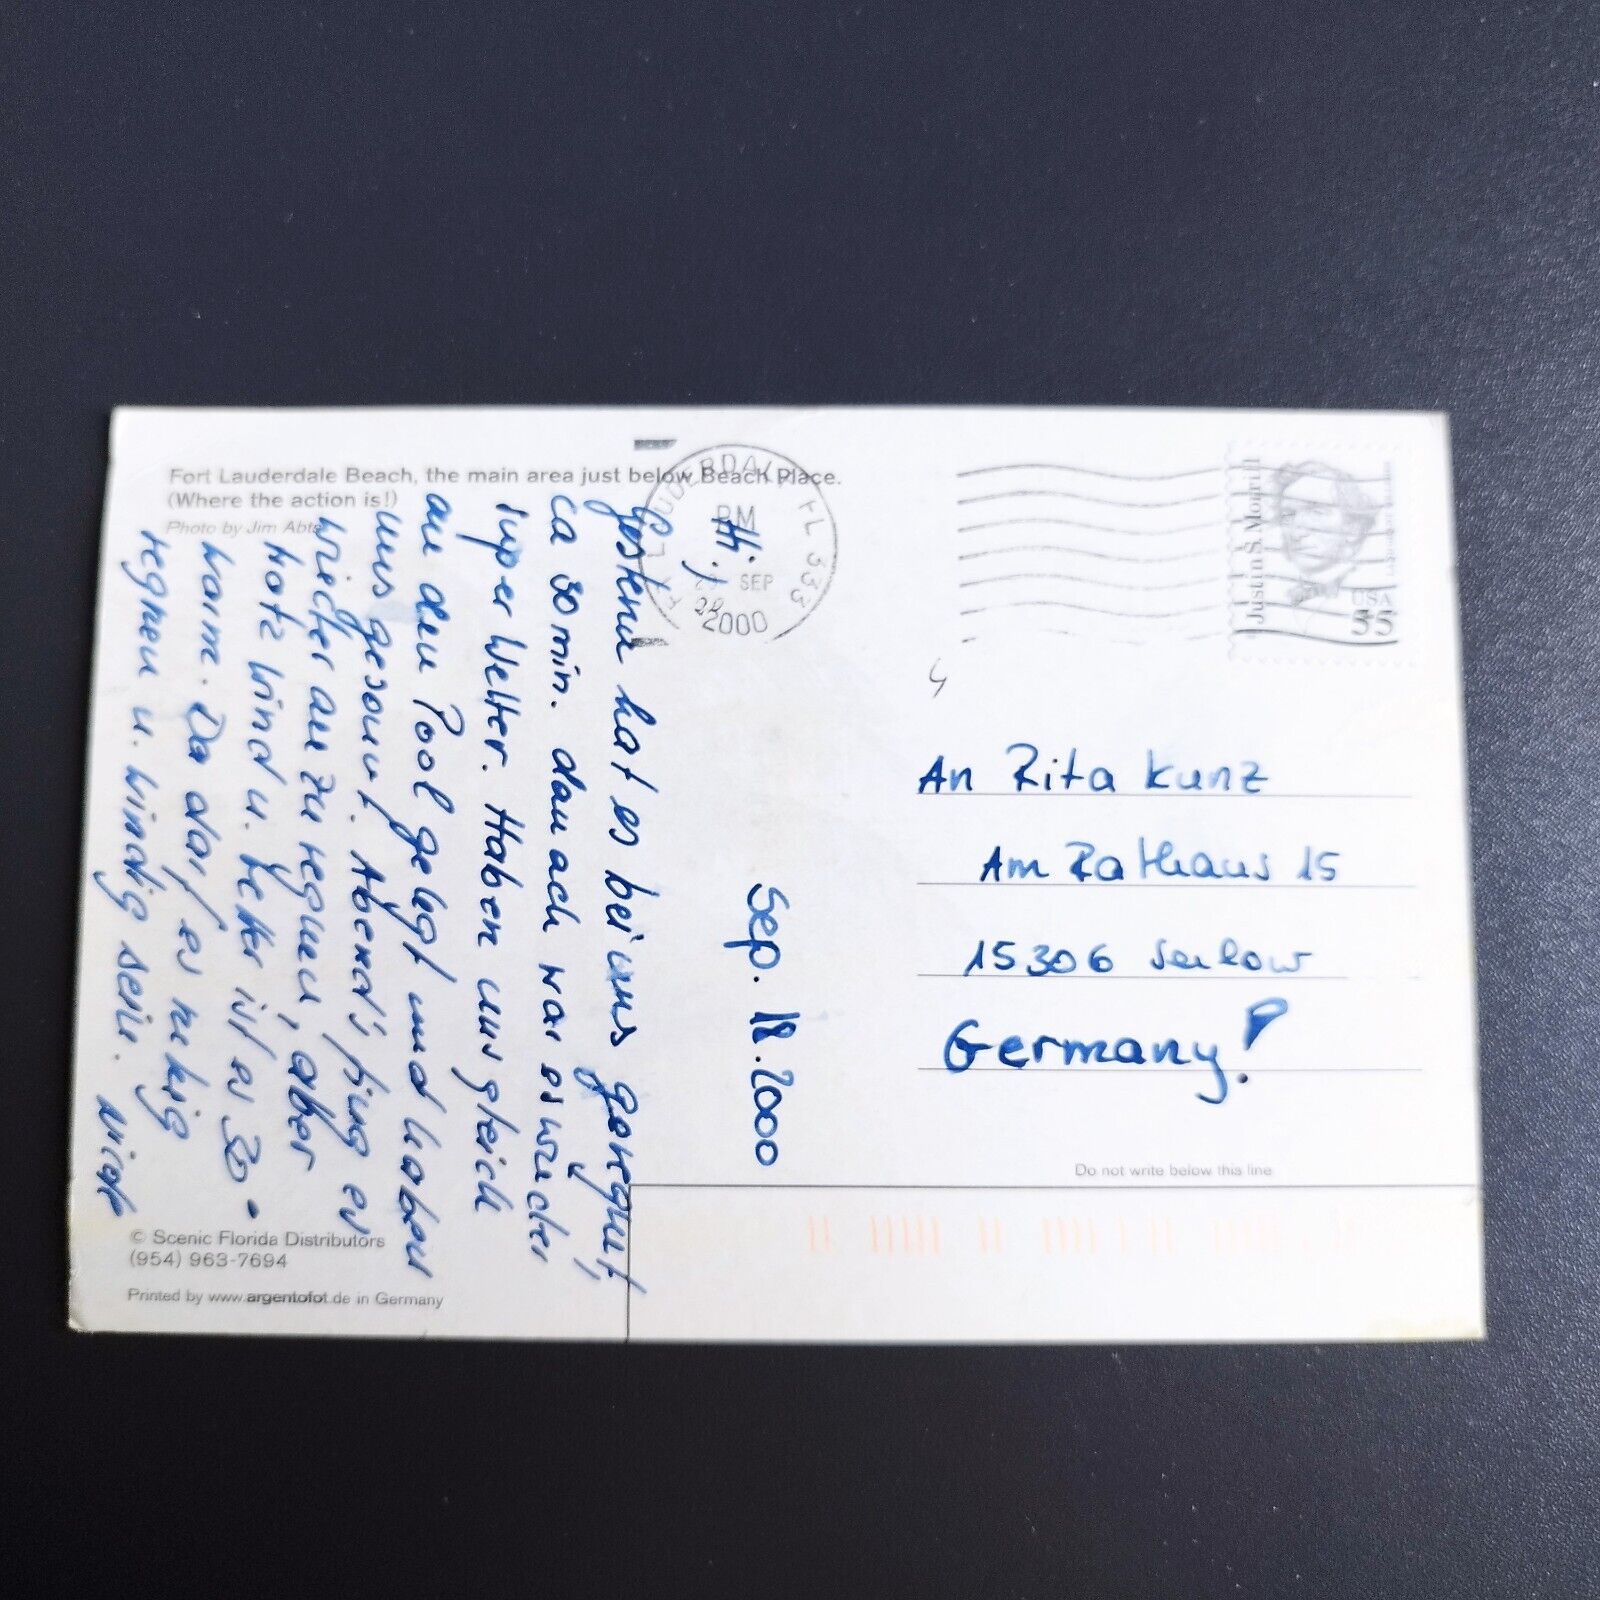 Fort Lauderdale Beach, the main area just below Beach Place.
(Where the action is!)
Photo by Jim Abts
Hi!
Gestern hat es bei uns geregnet,
ca 30 min. danach war es wieder
super Wetter. Haben uns gleich
an den Pool gelegt und haben
uns gesonnt. Abend's fing es
wieder an zu regnen, aber
trotz Wind u. Wetter ist es 30°
warm. Da darf es ruhig
regnen u. windig sein.
Sep. 18. 2000
FT LAUDERDALE, FL 333
PM
SEP
2000
Justin S. Morrill
USA
35
An Rita Kunz
Am Rathaus 15
15306 Seelow
Germany!
Do not write below this line
© Scenic Florida Distributors
(954) 963-7694
Printed by www.argentofot.de in Germany